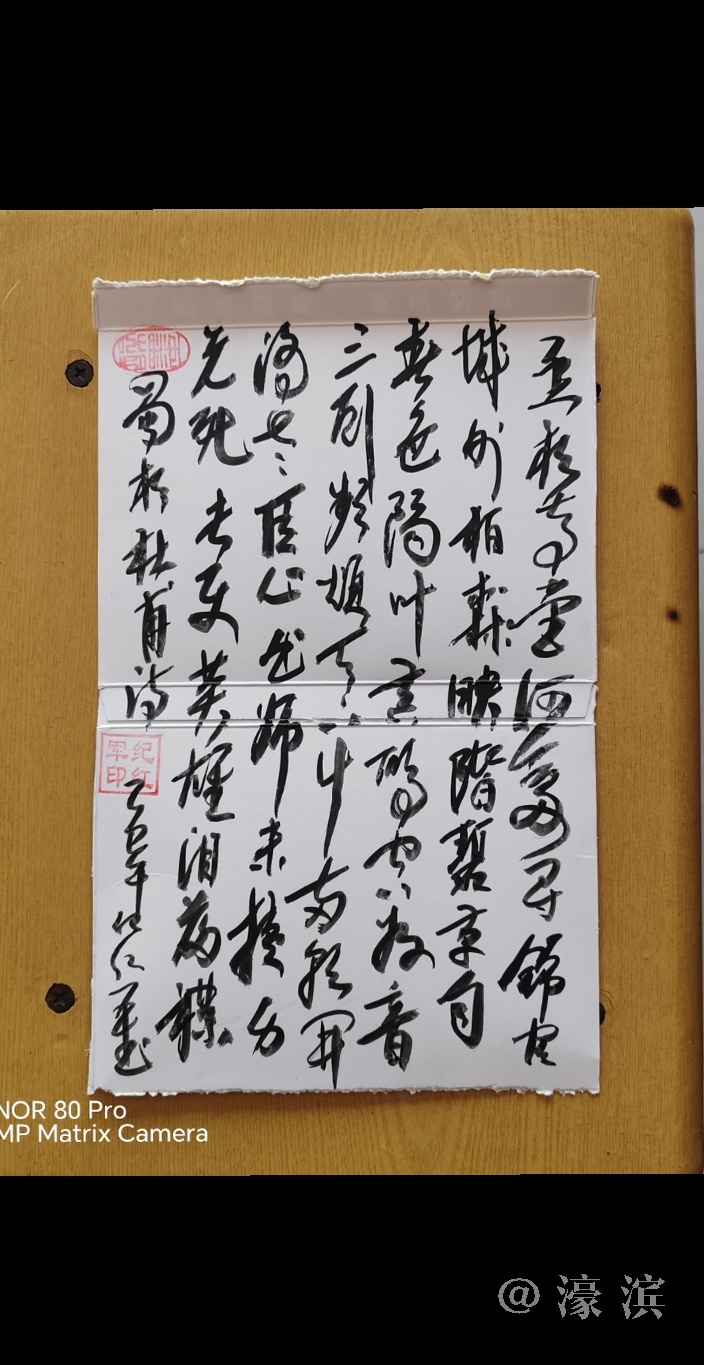 丞相祠堂何处寻锦官
城外柏森森映阶碧草自
春色隔叶黄鹂空好音
三顾频烦天下计两朝开
济老臣心出师未捷身
先死长使英雄泪满襟
蜀相杜甫诗
乙巳年纪红军书
纪红军印
NOR 80 Pro
MP Matrix Camera
@濠滨